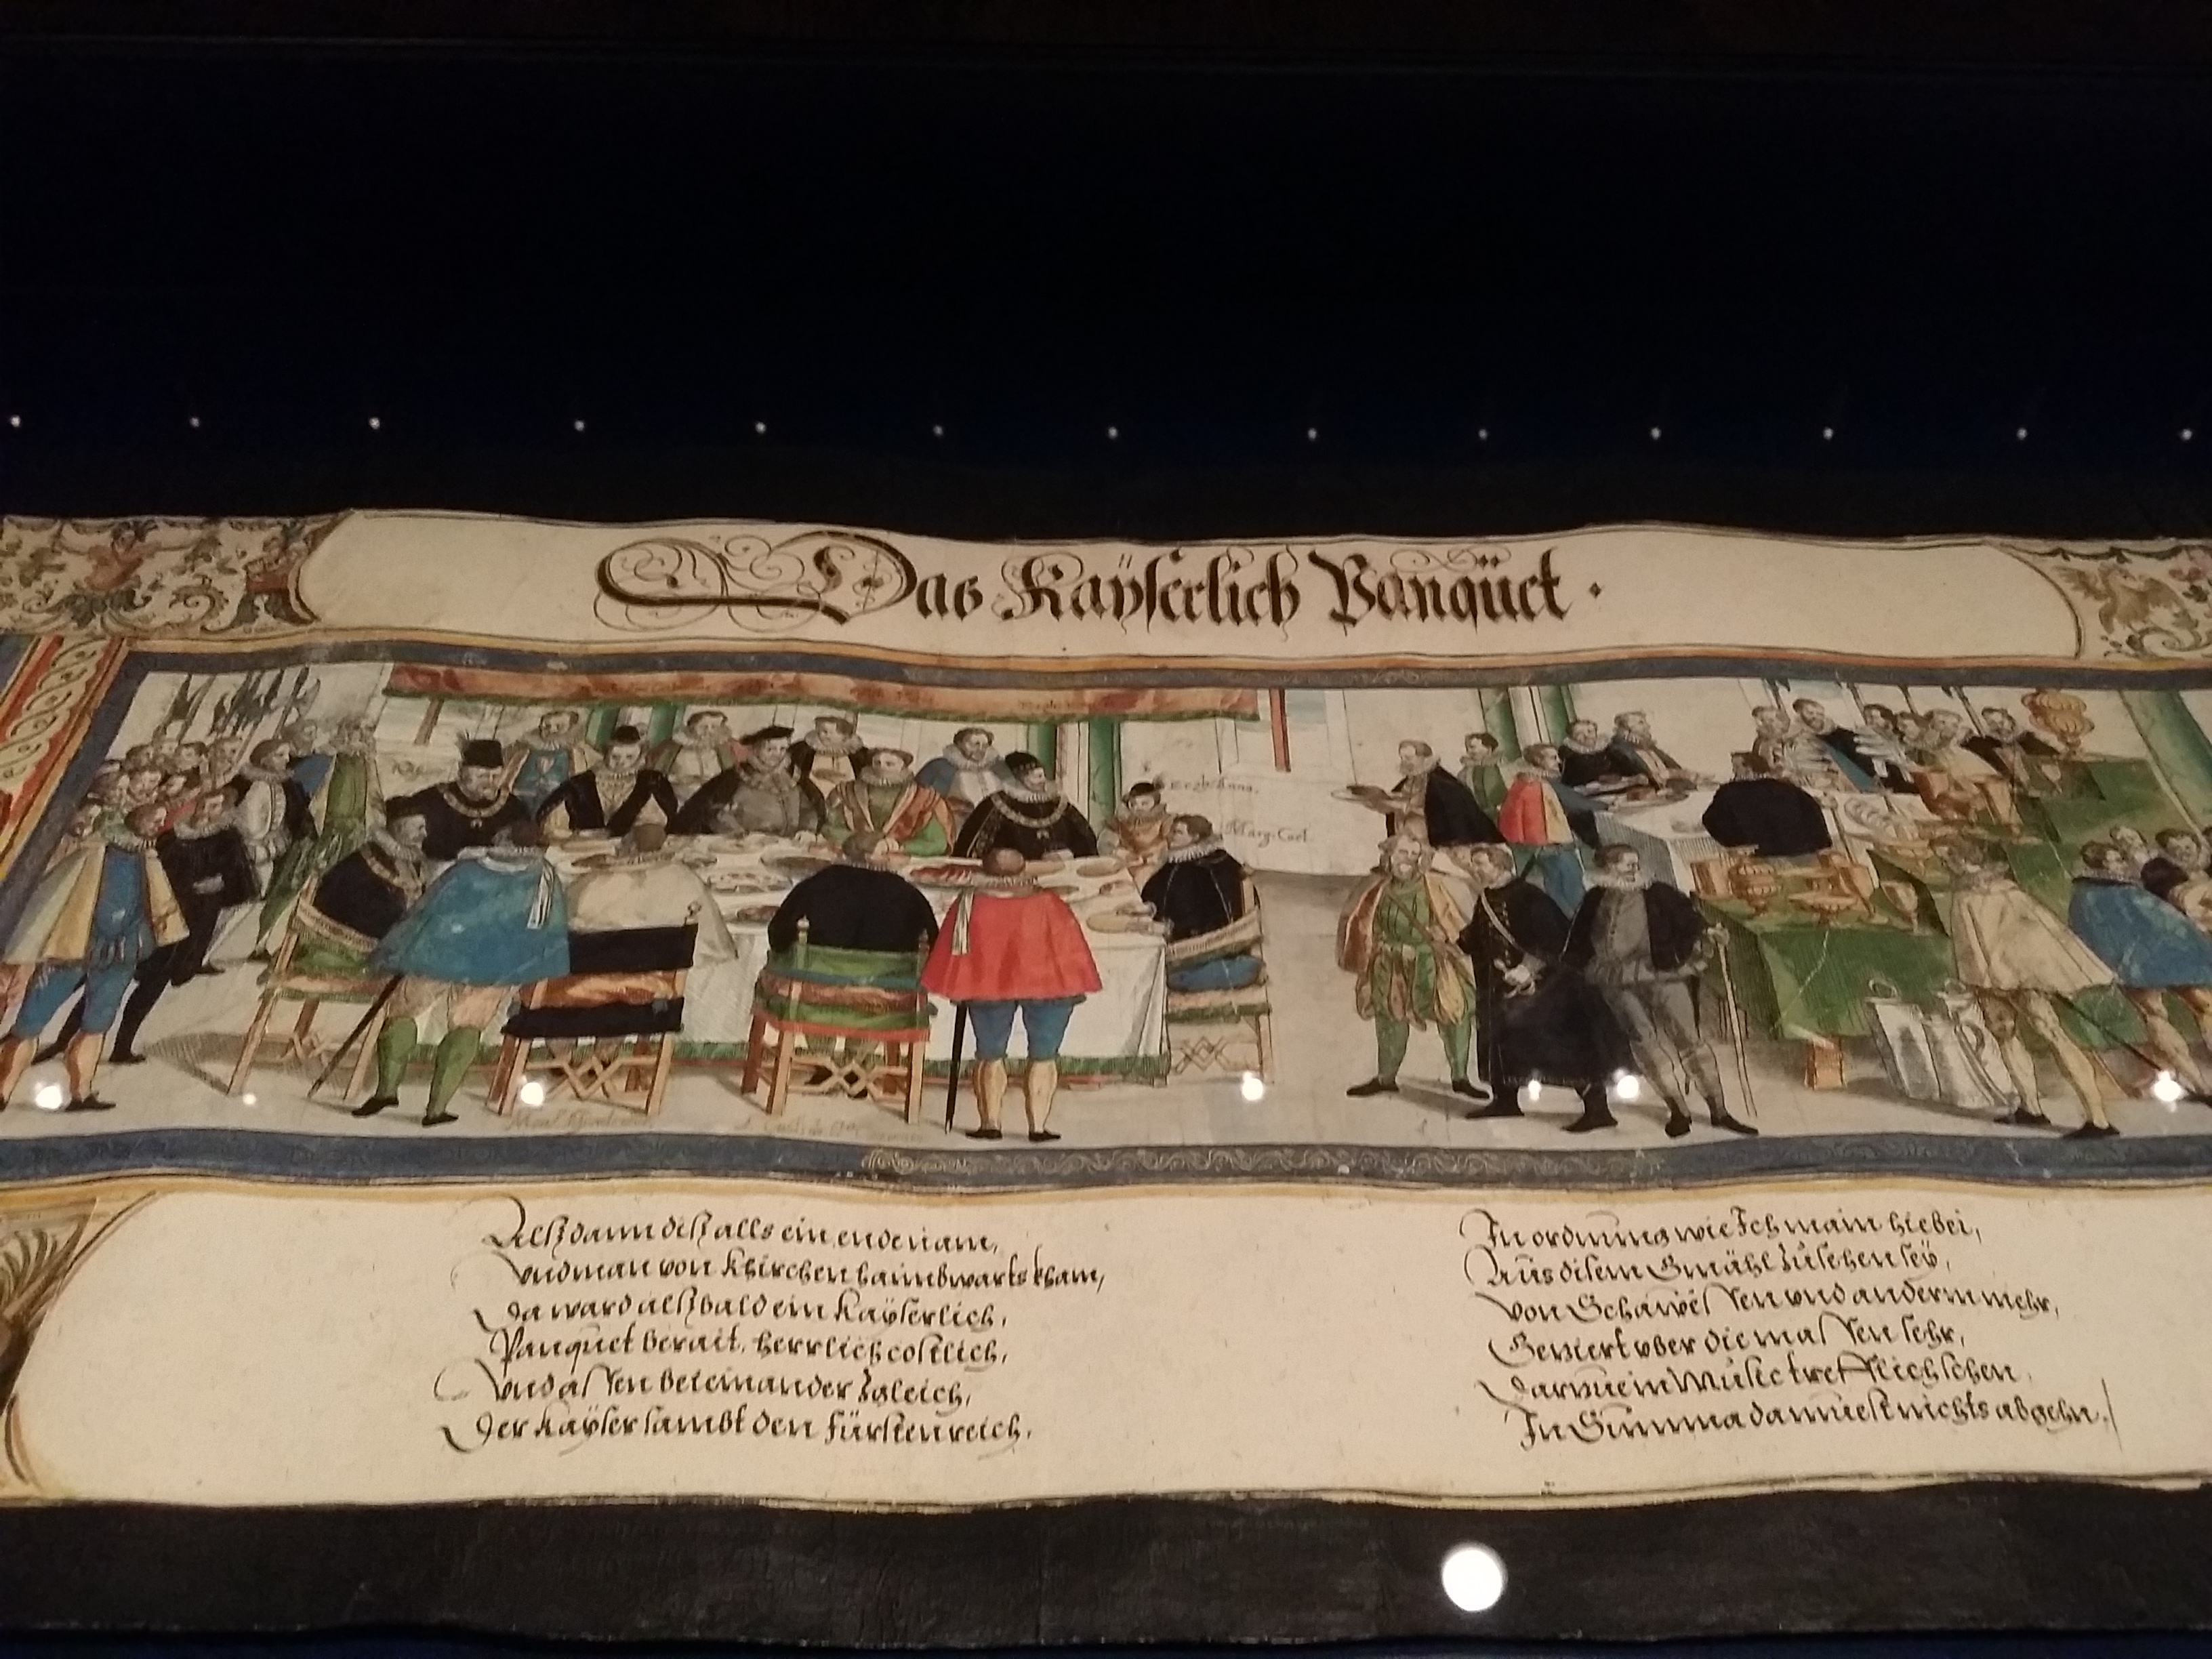 Das Kaÿserlich Panqúet.
Erzh: Anna.
Marg: Cast.
Alß dann diß alls ein ende nam,
Vnd man von Khirchen haimbwarts kham,
Da ward alßbald ein Kaÿserlich,
Panquet berait, herrlich costlich,
Vnd assen bei einander zgleich,
Der Kaÿser sambt den Fürsten reich.
In ordnung wie Ich main hiebei,
Aus disem Gmähl zúsehen seÿ,
Von Schawessen vnd anderm mehr,
Geziert vber die massen sehr,
Darzue ein Músic trefflich schen
In Summa da must nichts abgehn.